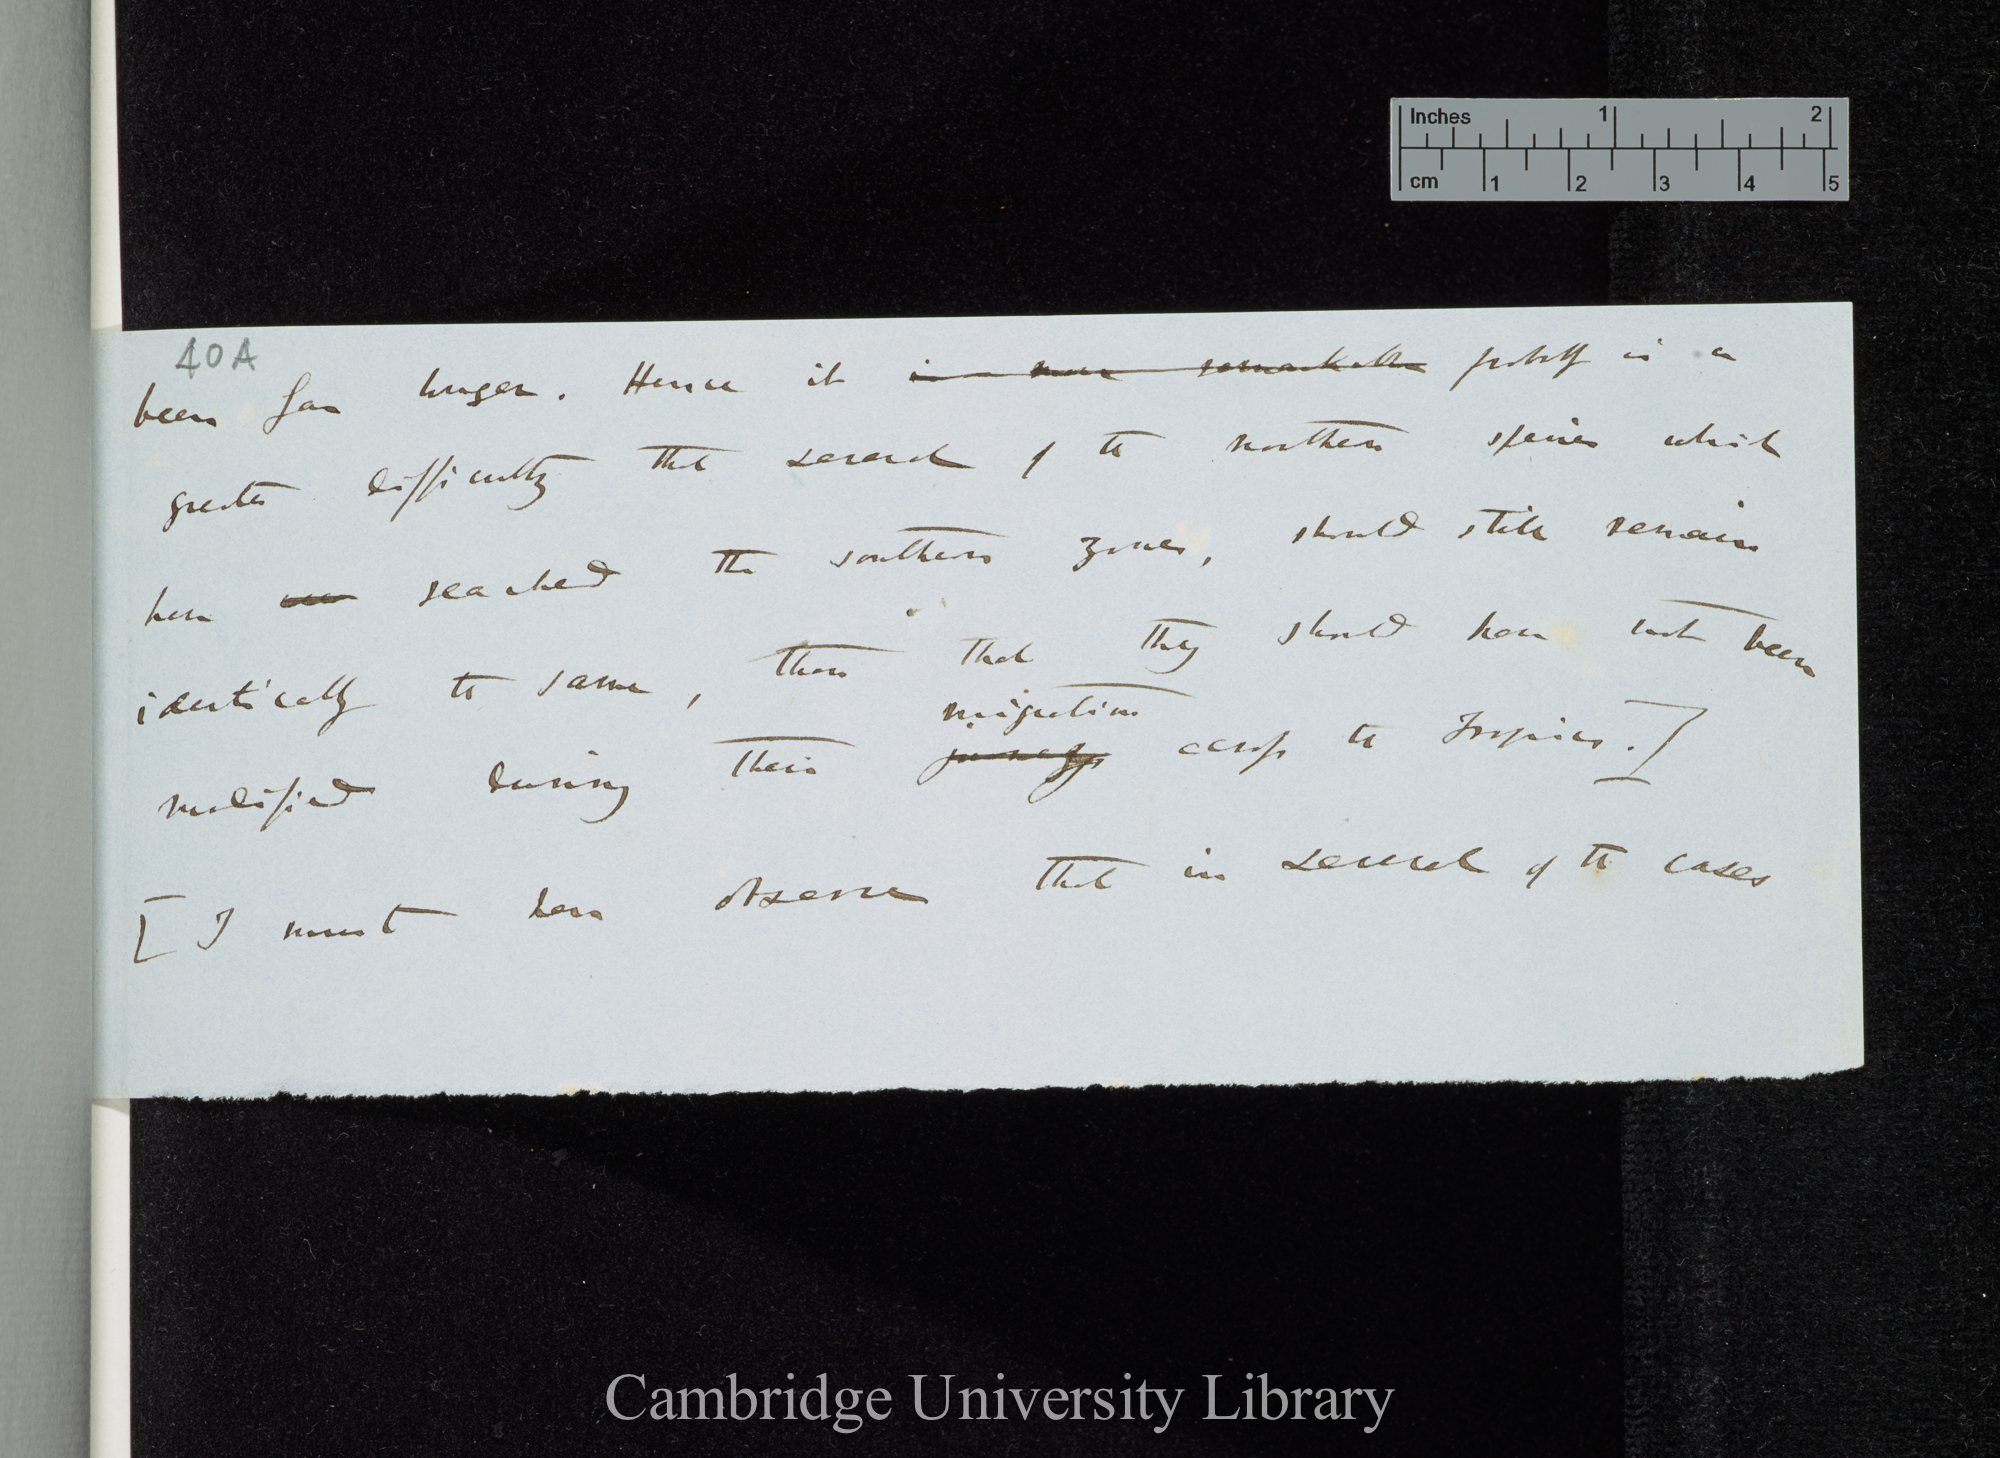 Inches 1 2
cm 1 2 3 4 5
40A
been far longer. Hence it is a more remarkable probly is a
greater difficulty that several of the northern species which
have reached the southern zones, should still remain
identically the same, than that they should have not been
migration
modified during their journeys across the Tropics.]
[I must here observe that in several of the cases
Cambridge University Library